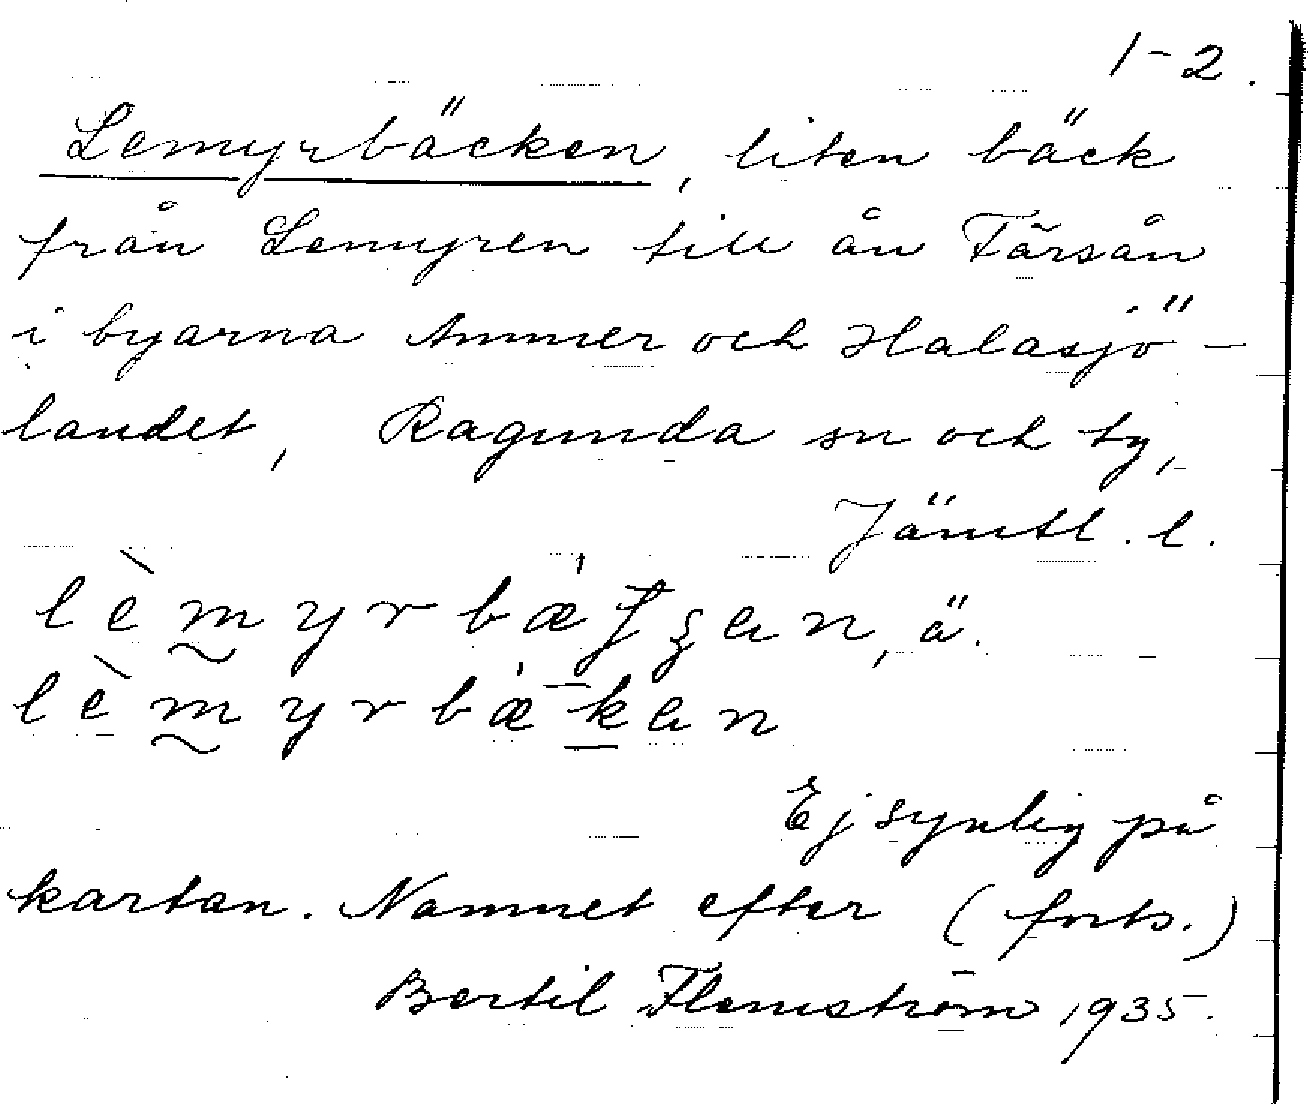 1-2.
Lemyrbäcken, liten bäck
från Lemyren till ån Färsån
i byarna Ammer och Halasjö-
landet, Ragunda sn och by,
Jämtl. l.
lèmyrbæ̍
lèmyrbæ̍ken
Ej synlig på
kartan. Namnet efter (forts.)
Bertil Flemström 1935.